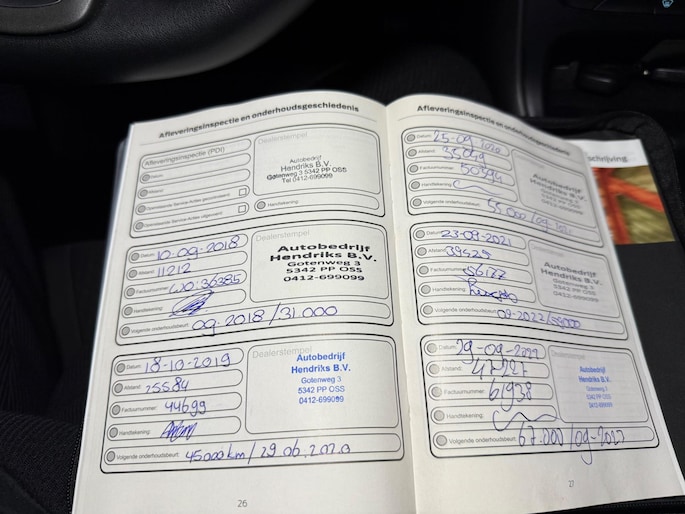 Afleveringsinspectie en onderhoudsgeschiedenis
Afleveringsinspectie (PDI)
Datum:
Afstand:
Dealerstempel
Autobedrijf
Hendriks B.V.
Gotenweg 3 5342 PP OSS
Tel 0412-699099
Handtekening:
Datum: 10-09-2018
Afstand: 11212
Factuurnummer: WO136385
Handtekening:
Volgende onderhoudsbeurt: 09-2018/31.000
Dealerstempel
Autobedrijf
Hendriks B.V.
Gotenweg 3
5342 PP OSS
0412-699099
Datum: 18-10-2019
Afstand: 25584
Factuurnummer: 44699
Handtekening:
Volgende onderhoudsbeurt: 45000km/29.06.2020
Dealerstempel
Autobedrijf
Hendriks B.V.
Gotenweg 3
5342 PP OSS
0412-699099
26
Afleveringsinspectie en onderhoudsgeschiedenis
Datum: 25-09-2020
Afstand: 35099
Factuurnummer: 50594
Handtekening:
Volgende onderhoudsbeurt: 55000/09-
Autobedrijf
Hendriks B.V.
Gotenweg 3
5342 PP OSS
0412-699099
Datum: 23-09-2021
Afstand: 39529
Factuurnummer: 56122
Handtekening:
Volgende onderhoudsbeurt: 09-2022/59000
Autobedrijf
Hendriks B.V.
Gotenweg 3
5342 PP OSS
0412-699099
Datum: 29-09-2022
Afstand: 47227
Factuurnummer: 61938
Handtekening:
Volgende onderhoudsbeurt: 67.000/09-2023
Dealerstempel
Autobedrijf
Hendriks B.V.
Gotenweg 3
5342 PP OSS
0412-699099
27
schrijving